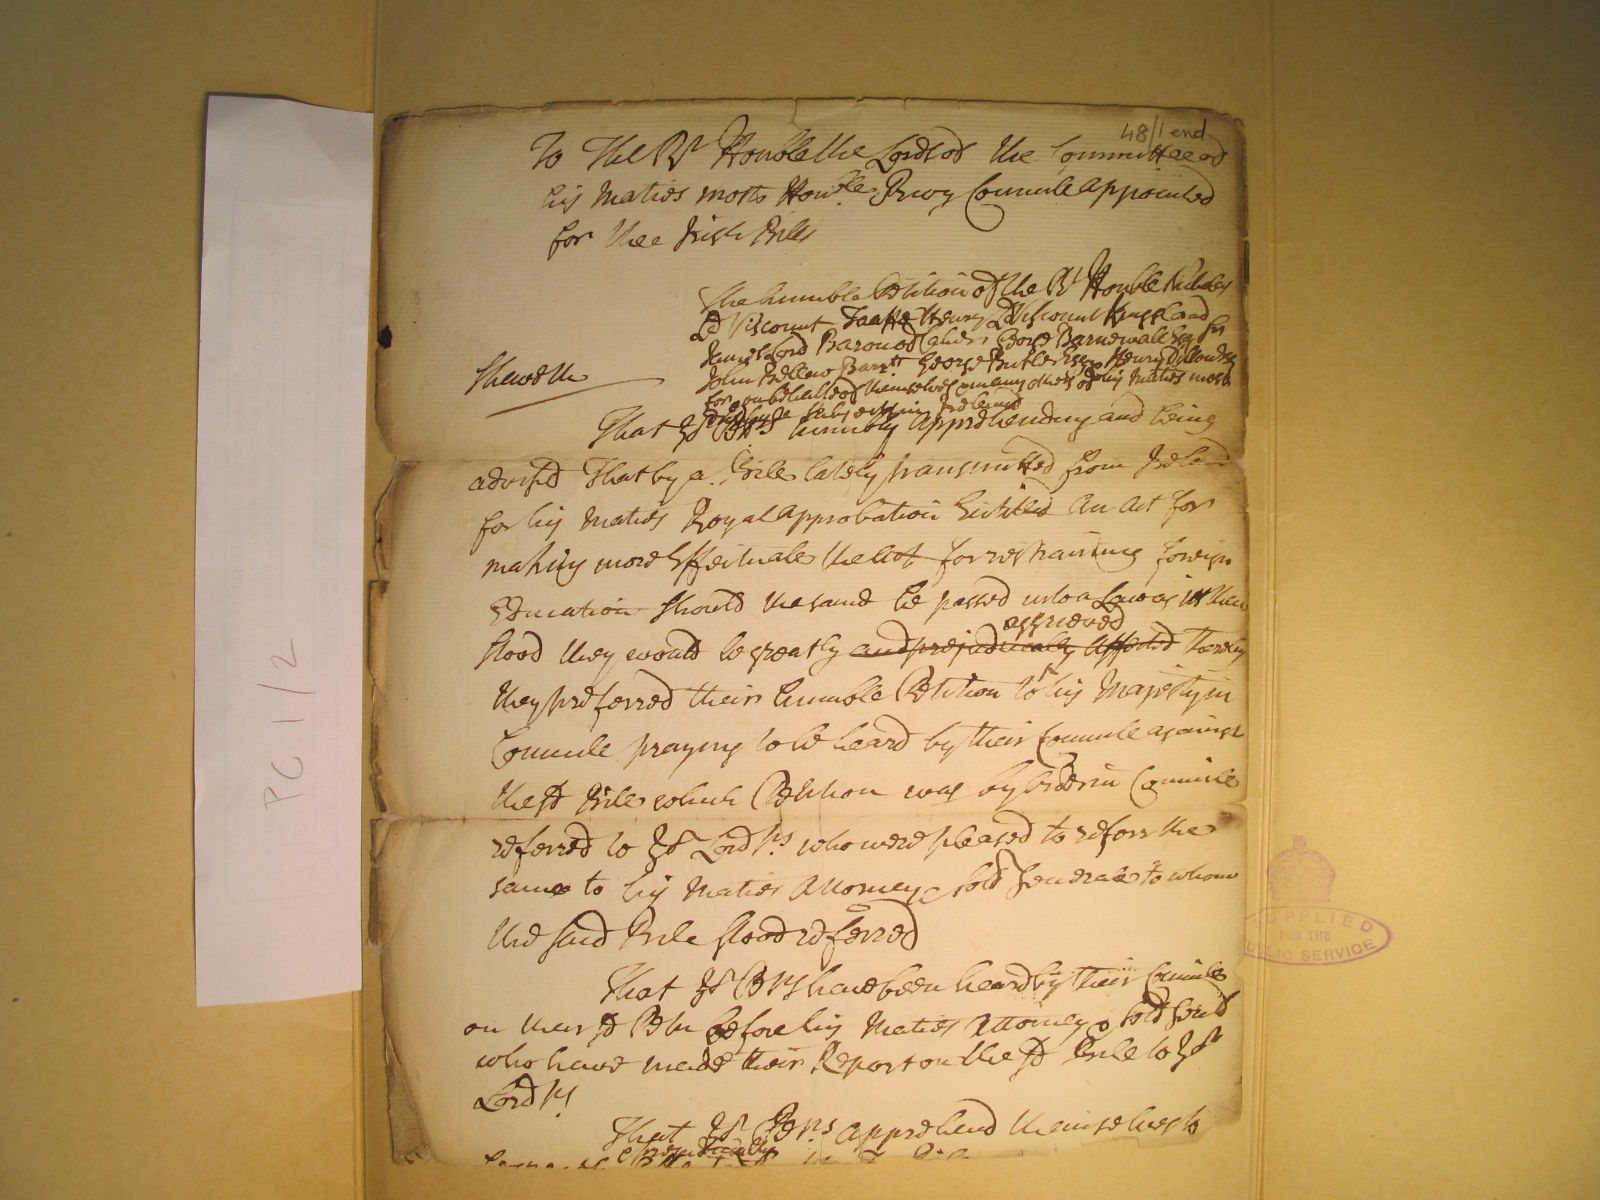 48/1 end
To The Rt Honble the Lords of the Committee of
his Maties most Honble Privy Councile appointed
for thee Irish Bills
The humble Petition of the Rt Honble Nicholas
Ld Viscount Taaffe Henry Ld Viscount Kingsland
James Lord Baron of Cahir George Barnewall Esq Sr
John Bellew Barrtt George Butler Esqr Henry Dillon Esq
for & on behalfe of themselves & many others of his Maties most
Sheweth
That yor Petrs humbly apprehending and being
advised That by a Bill lately transmitted from Ireland
for his Maties Royal Approbation Entitled An Act for
making more Effectuale the Act for restraining foreign
Education should the same be passed into a Law as itt then
aggrieved
stood they would be greatly and prejudicially Affected thereby
they preferred their humble Petition to his Majesty in
Councile praying to be heard by their Councile against
the sd Bile which Petition was by Order in Councile
referred to yor Lordps who were pleased to referr the
same to his Maties Attorney & Solr Generale to whom
the said Bile stood referred
That yor Petrs have been heard by their Councile
on their sd Petn before his Maties Attorney & Solr Genll
who have made their Report on the sd Bile to yor
Lordps
That yor Petrs apprehend themselves to
PC 1/2
SUPPLIED
FOR THE
PUBLIC SERVICE